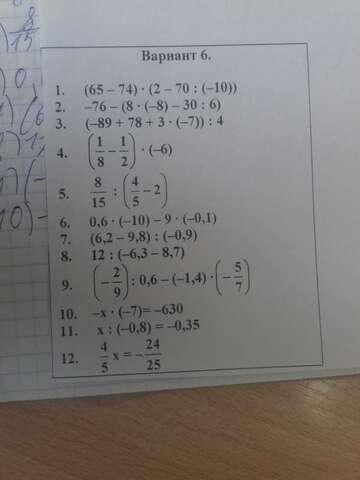 8
15
Вариант 6.
1. (65 – 74) · (2 – 70 : (–10))
2. –76 – (8 · (–8) – 30 : 6)
3. (–89 + 78 + 3 · (–7)) : 4
4. (1/8 – 1/2) · (–6)
5. 8/15 : (4/5 – 2)
6. 0,6 · (–10) – 9 · (–0,1)
7. (6,2 – 9,8) : (–0,9)
8. 12 : (–6,3 – 8,7)
9. (–2/9) : 0,6 – (–1,4) · (–5/7)
10. –x · (–7)= –630
11. x : (–0,8) = –0,35
12. 4/5 x = –24/25